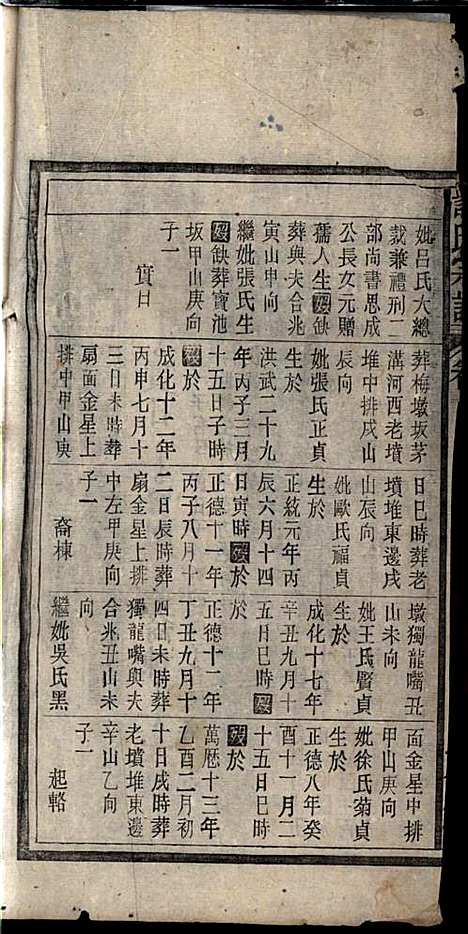 妣呂氏大總
裁兼禮刑二
部尚書思成
公長女元贈
孺人生歿缺
葬與夫合兆
寅山申向
繼妣張氏生
歿缺葬寶池
坂甲山庚向
子一
實日
葬梅墩坂茅
溝河西老墳
堆中排戌山
辰向
妣張氏正貞
生於
洪武二十九
年丙子三月
十五日子時
歿於
成化十二年
丙申七月十
三日未時葬
扇面金星上
排中甲山庚
日巳時葬老
墳堆東邊戌
山辰向
妣歐氏福貞
生於
正統元年丙
辰六月十四
日寅時歿於
正德十一年
丙子八月十
二日辰時葬
扇金星上排
中左甲庚向
子一
裔棟
墩獨龍嘴丑
山未向
妣王氏賢貞
生於
成化十七年
辛丑九月十
五日巳時歿
於
正德十二年
丁丑九月十
四日未時葬
獨龍嘴與夫
合兆丑山未
向
繼妣吳氏黑
面金星中排
甲山庚向
妣徐氏菊貞
生於
正德八年癸
酉十一月二
十五日巳時
歿於
萬曆十三年
乙酉二月初
十日戌時葬
老墳堆東邊
辛山乙向
子一
起輅